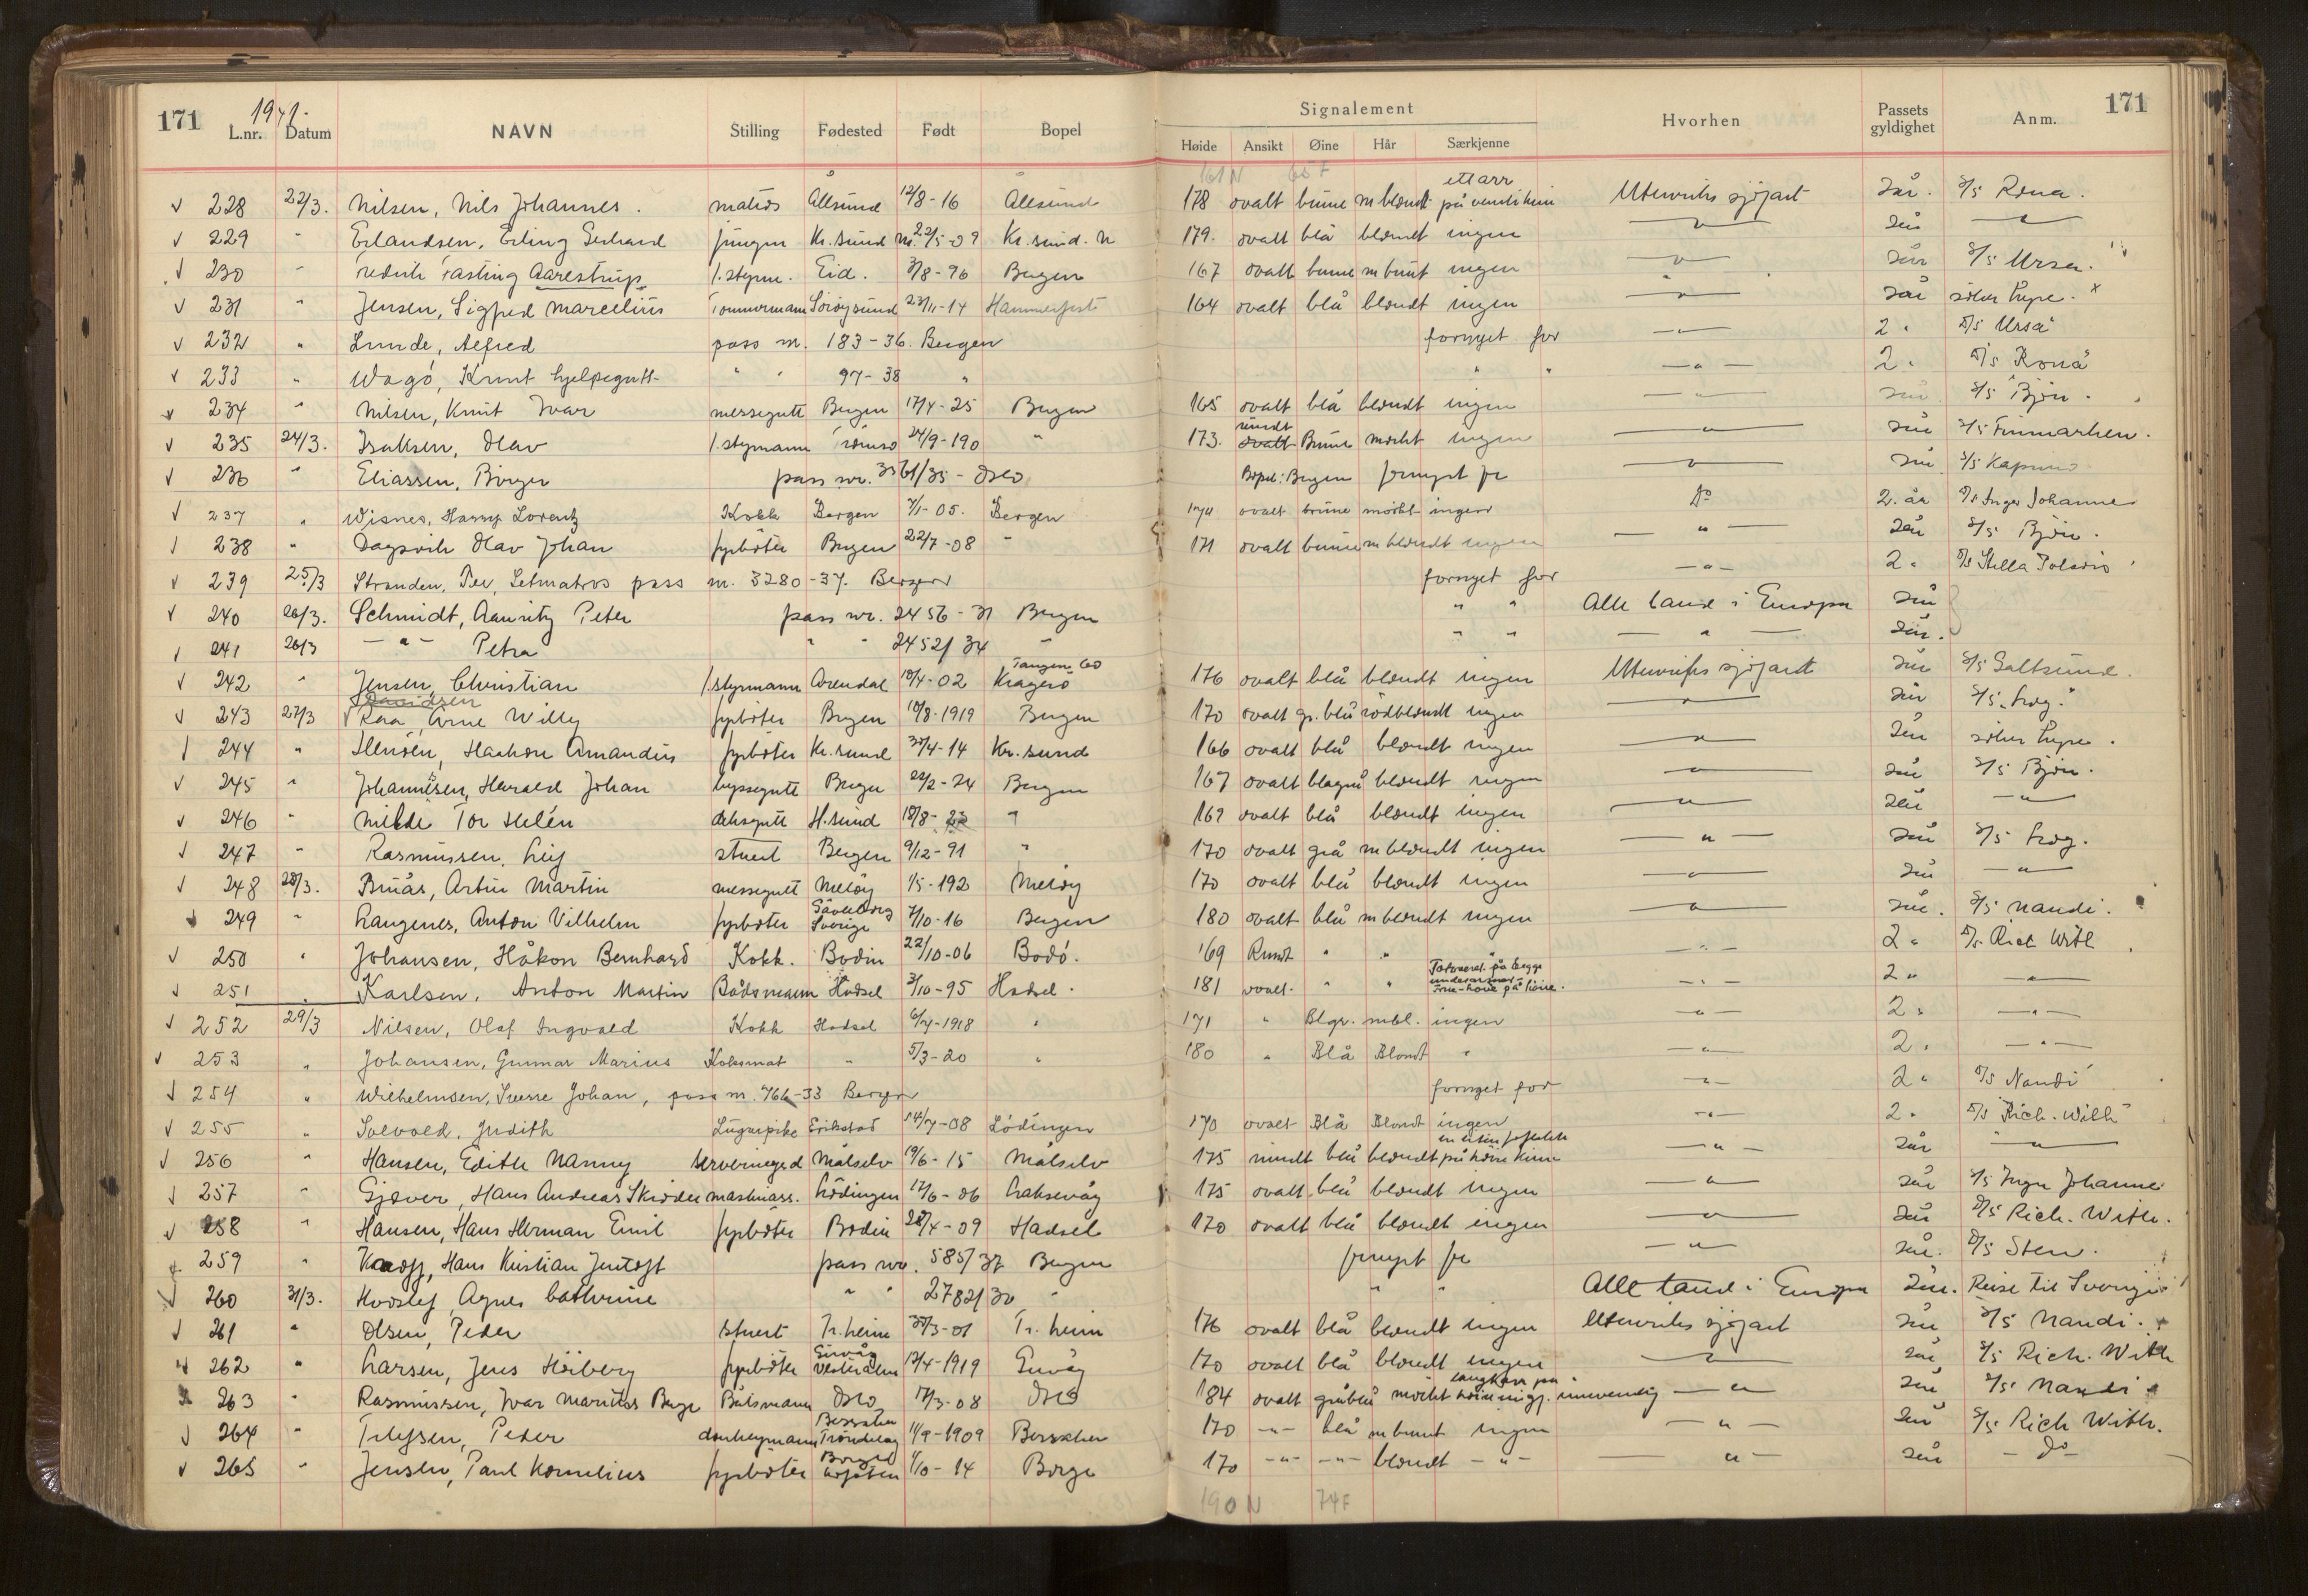 171 1941. 171
Signalement
L.nr. Datum NAVN Stilling Fødested Født Bopel Høide Ansikt Øine Hår Særkjenne Hvorhen Passets gyldighet Anm.
161 N 65 F
228 22/3. Nilsen, Nils Johannes. matros 12/8-16 178 ovalt brune m blondt ett arr på Utenriks sjøfart 2 år. S/S Rona.
229 " Erlandsen, Erling Gerhard Kr. sund N. 22/5-09 Kr. sund. N 179. ovalt blå blondt ingen — " — 2 år — " —
230 " Fasting Aarestrup 1. styrm. Eid. 3/8-96 Bergen 167 ovalt brune m brunt ingen — " — 2 år S/S Ursa.
231 " Jensen, Sigfred Marcelius Tømmermann Sørøysund 23/11-14 Hammerfest 164 ovalt blå blondt ingen — " — 2 år søker hyre. x
232 " Lunde, Alfred pass nr. 183-36. Bergen fornyet for — " — 2 " S/S Ursa
233 " Wågø, Knut hjelpegutt " " 97-38 " " " — " — 2 " S/S Rona
234 " Nilsen, Knut Ivar messegutt Bergen 17/4-25 Bergen 165 ovalt blå blondt ingen — " — 2 år S/S Bjørn.
235 24/3. Isaksen, Olav 1. styrmann Tromsø 24/9-190 " 173. rundt ovalt Brune mørkt ingen — " — 2 år S/S Finmarken.
236 " Eliassen, Birger pass nr. 3561/35 - Oslo Bopel: Bergen fornyet for — " — 2 år S/S
237 " Wisnes, Harry Lorentz Kokk Bergen 7/1-05. Bergen 174 ovalt brune mørkt ingen Do 2. år S/S Inger Johanne
238 " Dagsvik Olav Johan fyrbøter Bergen 22/7-08 " 171 ovalt brune m blondt ingen — " — 2 år S/S Bjørn.
239 25/3 Stranden, Per, Letmatros pass nr. 3280-37. Bergen fornyet for — " — 2 " S/S Stella Polaris
240 26/3. Schmidt, Peter pass nr. 2456-31 Bergen " " Alle land i Europa 2 år
241 26/3 — " — Petra " " 2452/34 " " " — " — 2 år.
242 " Jensen, Christian 1. styrmann Arendal 18/4-02 Tangen 60 Kragerø 176 ovalt blå blondt ingen Utenriks sjøfart 2 år S/S Saltsund.
243 27/3 Davidsen Raa, Arne Willy fyrbøter Bergen 18/8-1919 Bergen 170 ovalt gr. blå rødblondt ingen — " — 2 år S/S
244 " Haakon Amandus fyrbøter Kr. sund 30/4-14 Kr. sund 166 ovalt blå blondt ingen — " — 2 år søker hyre.
245 " Johannesen, Harald Johan byssegutt Bergen 22/2-24 Bergen 167 ovalt blågrå blondt ingen — " — 2 år S/S Bjørn.
246 " Milde Tor Helén deksgutt H.sund 18/8-23 " 169 ovalt blå blondt ingen — " — 2 år — " —
247 " Rasmussen, Leif stuert Bergen 9/12-91 " 170 ovalt grå m blondt ingen — " — 2 år S/S
248 28/3. Artur Martin messegutt Meløy 1/5-192 Meløy 170 ovalt blå blondt ingen — " — 2 år — " —
249 " Langenes, Anton Vilhelm fyrbøter Gävleborg Sverige 7/10-16 Bergen 180 ovalt blå m blondt ingen — " — 2 år. S/S Nandi.
250 " Johansen, Håkon Bernhard Kokk. Bodin 22/10-06 Bodø. 169 Rundt " " " — " — 2 " S/S Rich With
251 " Karlsen, Anton Martin Båtsmann Hadsel 3/10-95 Hadsel. 181 ovalt " " Tatoveret på begge underarmer — " — 2 " — " —
252 29/3 Nilsen, Olaf Ingvald Kokk Hadsel 6/7-1918 " 171 " Blgr. mbl. ingen — " — 2 " — " —
253 " Johansen, Gunnar Marius Koksmat " 5/3-20 " 180 " Blå Blondt " — " — 2 " — " —
254 " Wilhelmsen, Sverre Johan, pass nr. 766-33 Bergen fornyet for — " — 2 " S/S Nandi
255 " Solvold, Judith Lugarpike Erikstad 14/7-08 Lødingen 170 ovalt Blå Blondt ingen — " — 2 " S/S Rich. With
256 " Hansen, Edith Nanny Målselv 19/6-15 Målselv 175 rundt blå blondt en liten på — " — 2 år — " —
257 " Gjæver, Hans Andreas maskinass. Lødingen 17/6-06 Laksevåg 175 ovalt blå blondt ingen — " — 2 år S/S Inger Johanne
258 " Hansen, Hans Herman Emil fyrbøter Bodin 28/4-09 Hadsel 170 ovalt blå blondt ingen — " — 2 år S/S Rich. With.
259 " Hans Kristian Jentoft pass nr. 585/37 Bergen fornyet for — " — 2 år. S/S Sten.
260 31/3. Agnes Cathrine " " 2782/30 " " " Alle land i Europa 2 år. Reise til Sverige
261 " Olsen, Peder Stuert Tr.heim 30/3-01 Tr.heim 176 ovalt blå blondt ingen Utenriks sjøfart 2 år S/S Nandi.
262 " Larsen, Jens Høiberg fyrbøter Vesterålen 13/4-1919 170 ovalt blå blondt ingen — " — 2 år S/S Rich. With
263 " Rasmussen, Ivar Marius Båtsmann Oslo 17/3-08 Oslo 184 ovalt gråblå mørkt innvendig — " — 2 år S/S Nandi
264 " Peder donkeymann Trøndelag 11/9-1909 170 — " — blå m brunt ingen — " — 2 år S/S Rich With.
265 " Jensen, Paul Kornelius fyrbøter Borge Lofoten 1/10-14 Borge 170 — " — — " — blondt — " — — " — 2 år — Do —
190 N 74 F